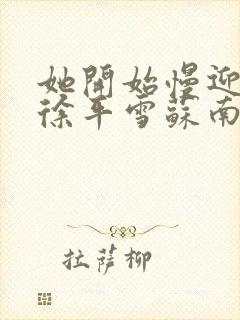 她開始慢迎
徐平雪蘇南
拉萨柳